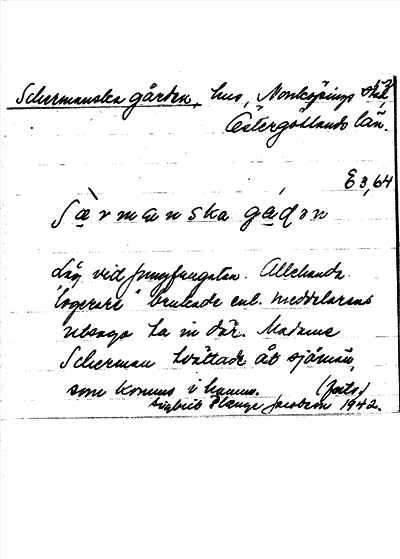 Schermanska gården, hus, Norrköpings stad,
Östergötlands län.
E 3,64
Sæ̀rmanska gáḍən
Låg vid Jungfrugatan. Allehanda
"logerare" brukade enl. meddelarens
utsago ta in där. Madame
Scherman tvättade åt sjömän,
som kommo i hamn. (forts.)
Ingbrit Plenge Jacobson 1942.